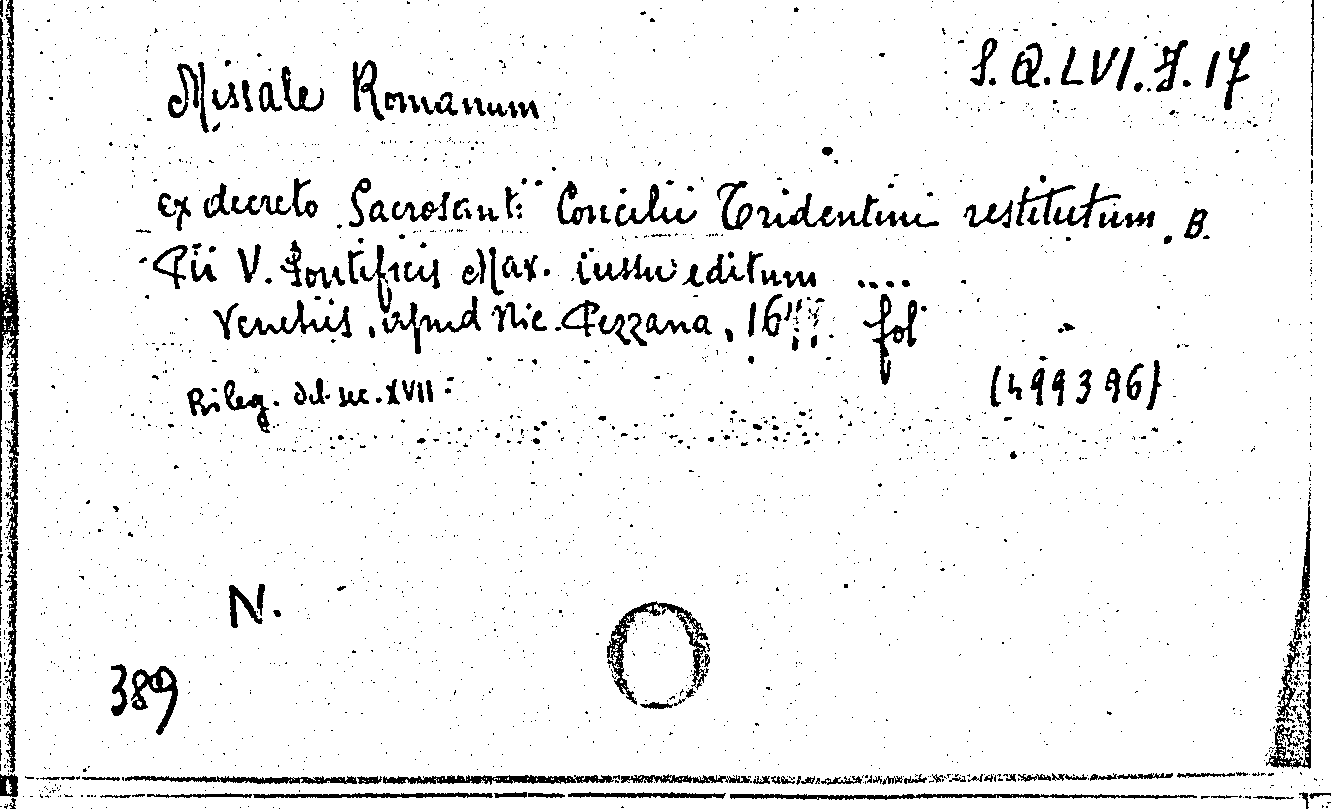 Missale Romanum
S.Q.LVI.J.17
ex decreto Sacrosanti Concilii Tridentini restitutum, B.
Pii V. Pontificis Max. iussu editum ....
Venetiis, apud Nic. Pezzana, fol
Rileg. del sec. XVII
(499396)
N.
389